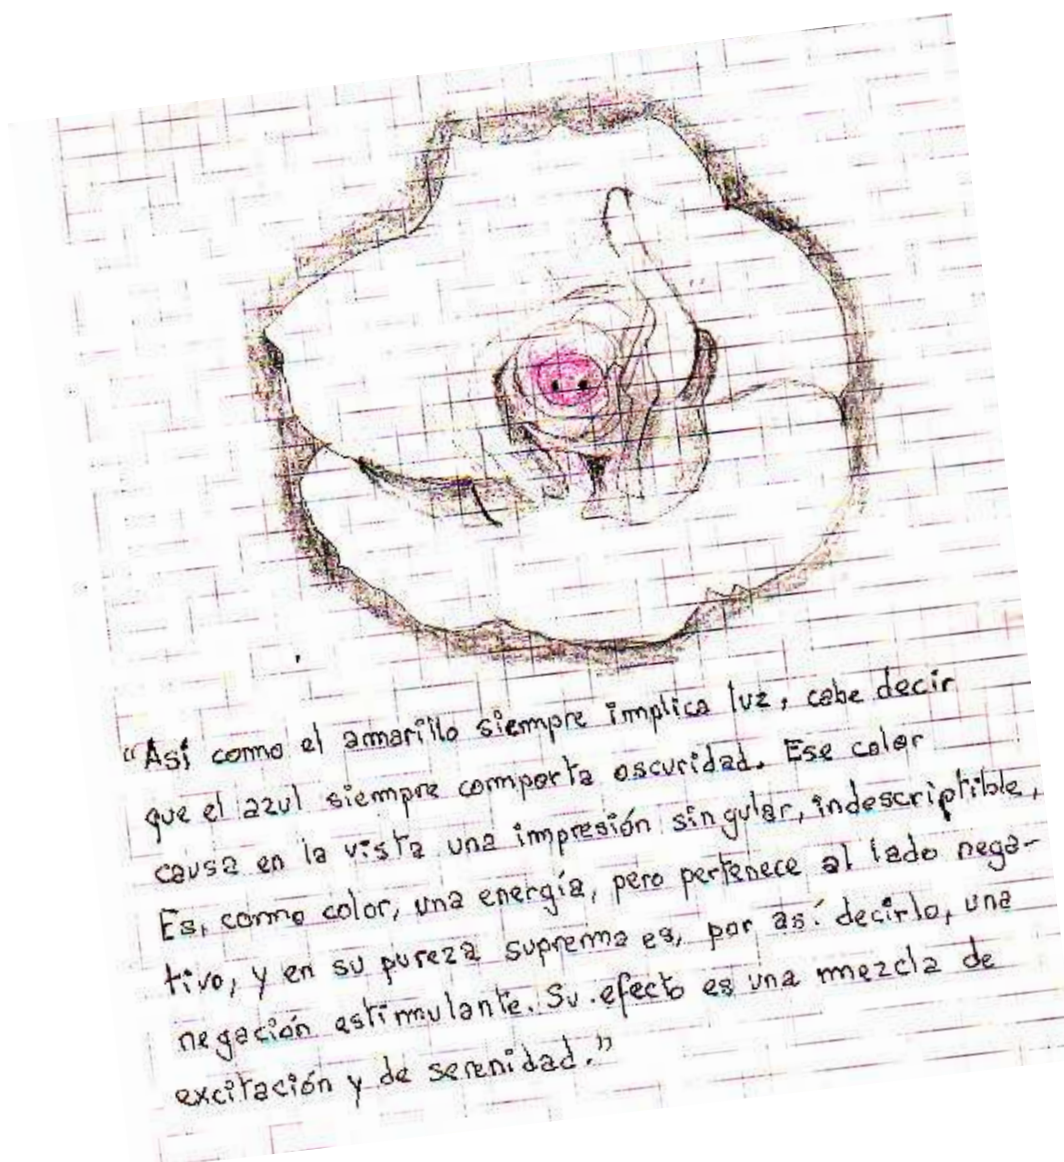 “Así como el amarillo siempre implica luz, cabe decir
que el azul siempre comporta oscuridad. Ese color
causa en la vista una impresión singular, indescriptible,
Es, como color, una energía, pero pertenece al lado nega-
tivo, y en su pureza suprema es, por así decirlo, una
negación estimulante. Su efecto es una mezcla de
excitación y de serenidad.”